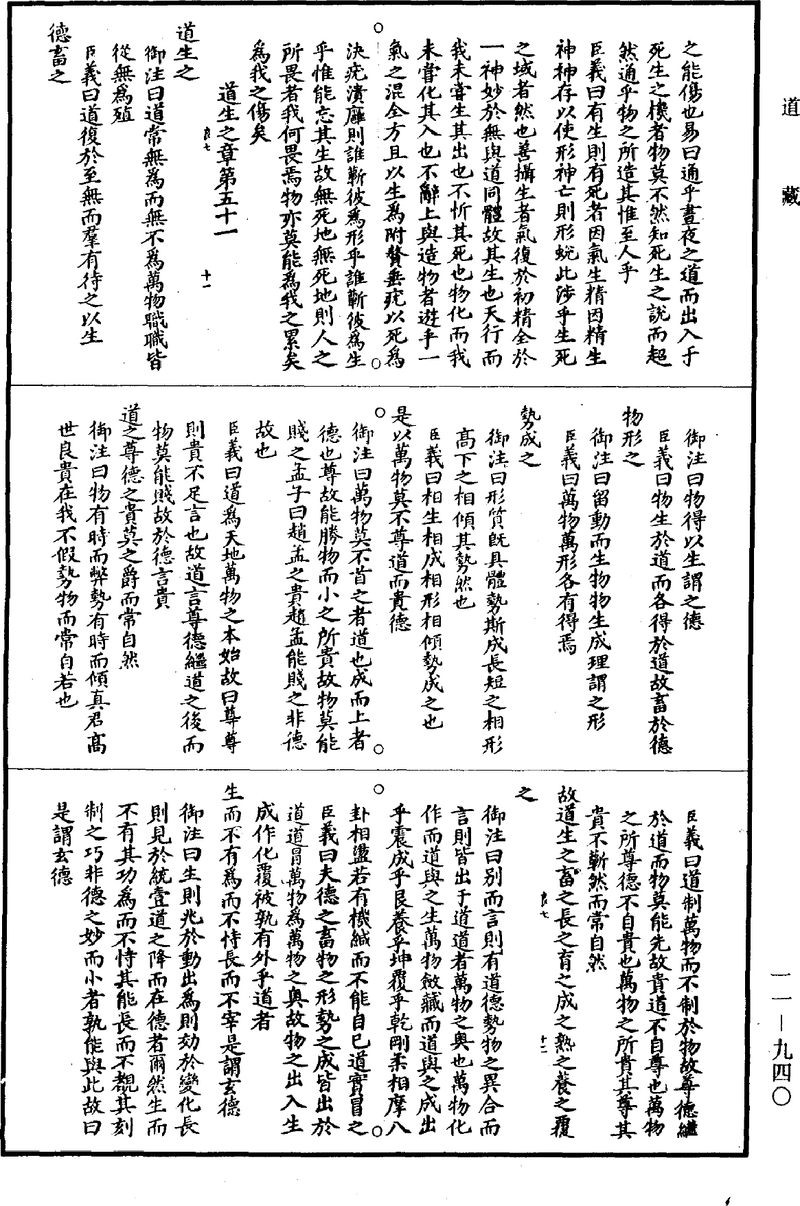 道藏
之能傷也易曰通乎晝夜之道而出入于
死生之機者物莫不然知死生之說而超
然通乎物之所造其惟至人乎
臣義曰有生則有死者因氣生精因精生
神神存以使形神亡則形蛻此涉乎生死
之域者然也善攝生者氣復於初精全於
一神妙於無與道同體故其生也天行而
我未嘗生其出也不忻其死也物化而我
未嘗化其入也不辭上與造物者遊乎一
氣之混全方且以生為附贅垂疣以死為
決疣潰癰則誰靳彼為形乎誰靳彼為生
乎惟能忘其生故無死地無死地則人之
所畏者我何畏焉物亦莫能為我之累矣
為我之傷矣
道生之章第五十一
良七
十一
道生之
御注曰道常無為而無不為萬物職職皆
從無為殖
臣義曰道復於至無而羣有待之以生
德畜之
御注曰物得以生謂之德
臣義曰物生於道而各得於道故畜於德
物形之
御注曰留動而生物物生成理謂之形
臣義曰萬物萬形各有得焉
勢成之
御注曰形質既具體勢斯成長短之相形
高下之相傾其勢然也
臣義曰相生相成相形相傾勢成之也
是以萬物莫不尊道而貴德
御注曰萬物莫不首之者道也成而上者
德也尊故能勝物而小之所貴故物莫能
賤之孟子曰趙孟之貴趙孟能賤之非德
故也
臣義曰道為天地萬物之本始故曰尊尊
則貴不足言也故道言尊德繼道之後而
物莫能賤故於德言貴
道之尊德之貴莫之爵而常自然
御注曰物有時而弊勢有時而傾真君高
世良貴在我不假勢物而常自若也
臣義曰道制萬物而不制於物故尊德繼
於道而物莫能先故貴道不自尊也萬物
之所尊德不自貴也萬物之所貴其尊其
貴不靳然而常自然
故道生之畜之長之育之成之熟之養之覆
良七
十二
之
御注曰別而言則有道德勢物之異合而
言則皆出于道道者萬物之奧也萬物化
作而道與之生萬物斂藏而道與之成出
乎震成乎艮養乎坤覆乎乾剛柔相摩八
卦相盪若有機緘而不能自已道實冒之
臣義曰夫德之畜物之形勢之成皆出於
道道冒萬物為萬物之奧故物之出入生
成作化覆被孰有外乎道者
生而不有為而不恃長而不宰是謂玄德
御注曰生則兆於動出為則効於變化長
則見於統壹道之降而在德者爾然生而
不有其功為而不恃其能長而不覩其刻
制之巧非德之妙而小者孰能與此故曰
是謂玄德
一一—九四〇